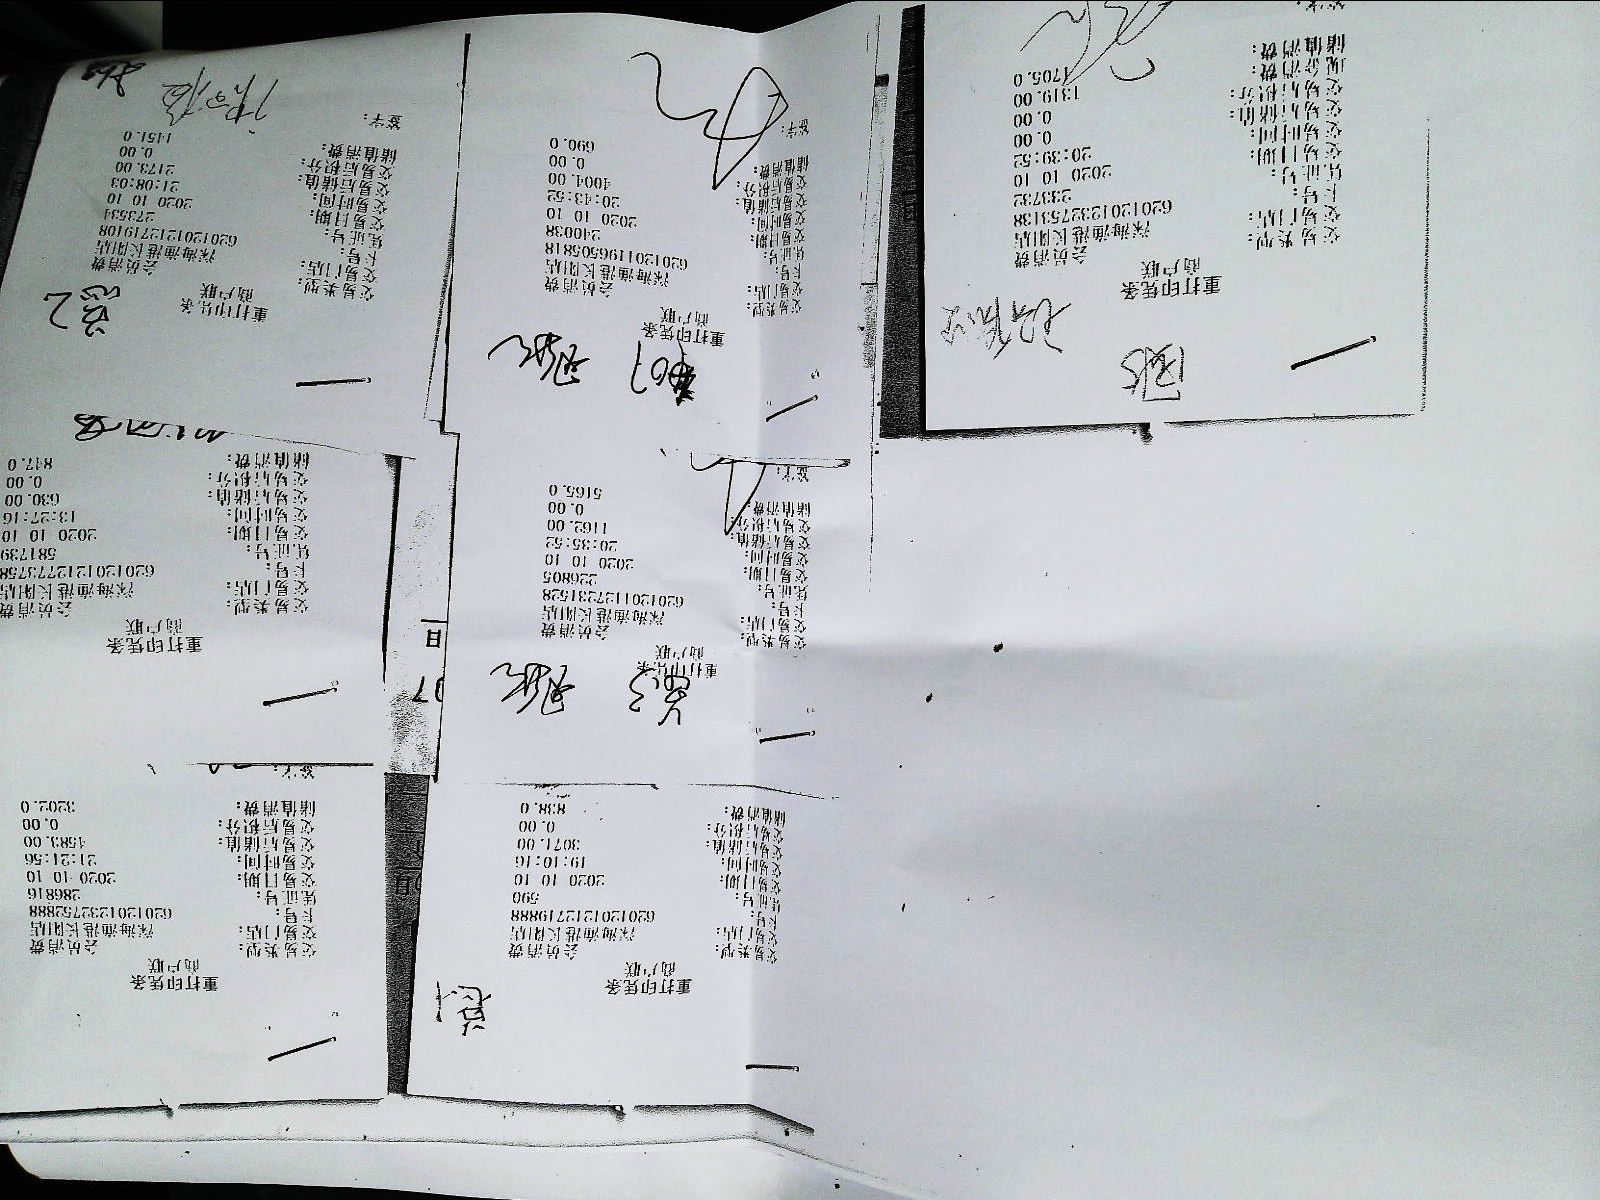 重打印凭条
商户联
交易类型: 会员消费
交易门店: 深海渔港长阳店
卡号: 6201201212719888
凭证号: 590
交易日期: 2020 10 10
交易时间: 19:10:16
交易后储值: 3071.00
交易后积分: 0.00
储值消费: 838.0
重打印凭条
商户联
交易类型: 会员消费
交易门店: 深海渔港长阳店
卡号: 6201201232752888
凭证号: 286816
交易日期: 2020 10 10
交易时间: 21:21:56
交易后储值: 4583.00
交易后积分: 0.00
储值消费: 3202.0
签字:
重打印凭条
商户联
交易类型: 会员消费
交易门店: 深海渔港长阳店
卡号: 6201201127231528
凭证号: 226805
交易日期: 2020 10 10
交易时间: 20:35:52
交易后储值: 1162.00
交易后积分: 0.00
储值消费: 5165.0
签字:
日
07
重打印凭条
商户联
交易类型: 会员消费
交易门店: 深海渔港长阳店
卡号: 6201201212773758
凭证号: 581739
交易日期: 2020 10 10
交易时间: 13:27:16
交易后储值: 630.00
交易后积分: 0.00
储值消费: 847.0
重打印凭条
商户联
交易类型: 会员消费
交易门店: 深海渔港长阳店
卡号: 6201201232753138
凭证号: 233732
交易日期: 2020 10 10
交易时间: 20:39:52
交易后储值: 0.00
交易后积分: 0.00
现金消费: 1319.00
储值消费: 1705.0
签字:
重打印凭条
商户联
交易类型: 会员消费
交易门店: 深海渔港长阳店
卡号: 6201201196505818
凭证号: 240038
交易日期: 2020 10 10
交易时间: 20:43:52
交易后储值: 4004.00
交易后积分: 0.00
储值消费: 690.0
签字:
重打印凭条
商户联
交易类型: 会员消费
交易门店: 深海渔港长阳店
卡号: 6201201212719108
凭证号: 273534
交易日期: 2020 10 10
交易时间: 21:08:03
交易后储值: 2173.00
交易后积分: 0.00
储值消费: 1451.0
签字: